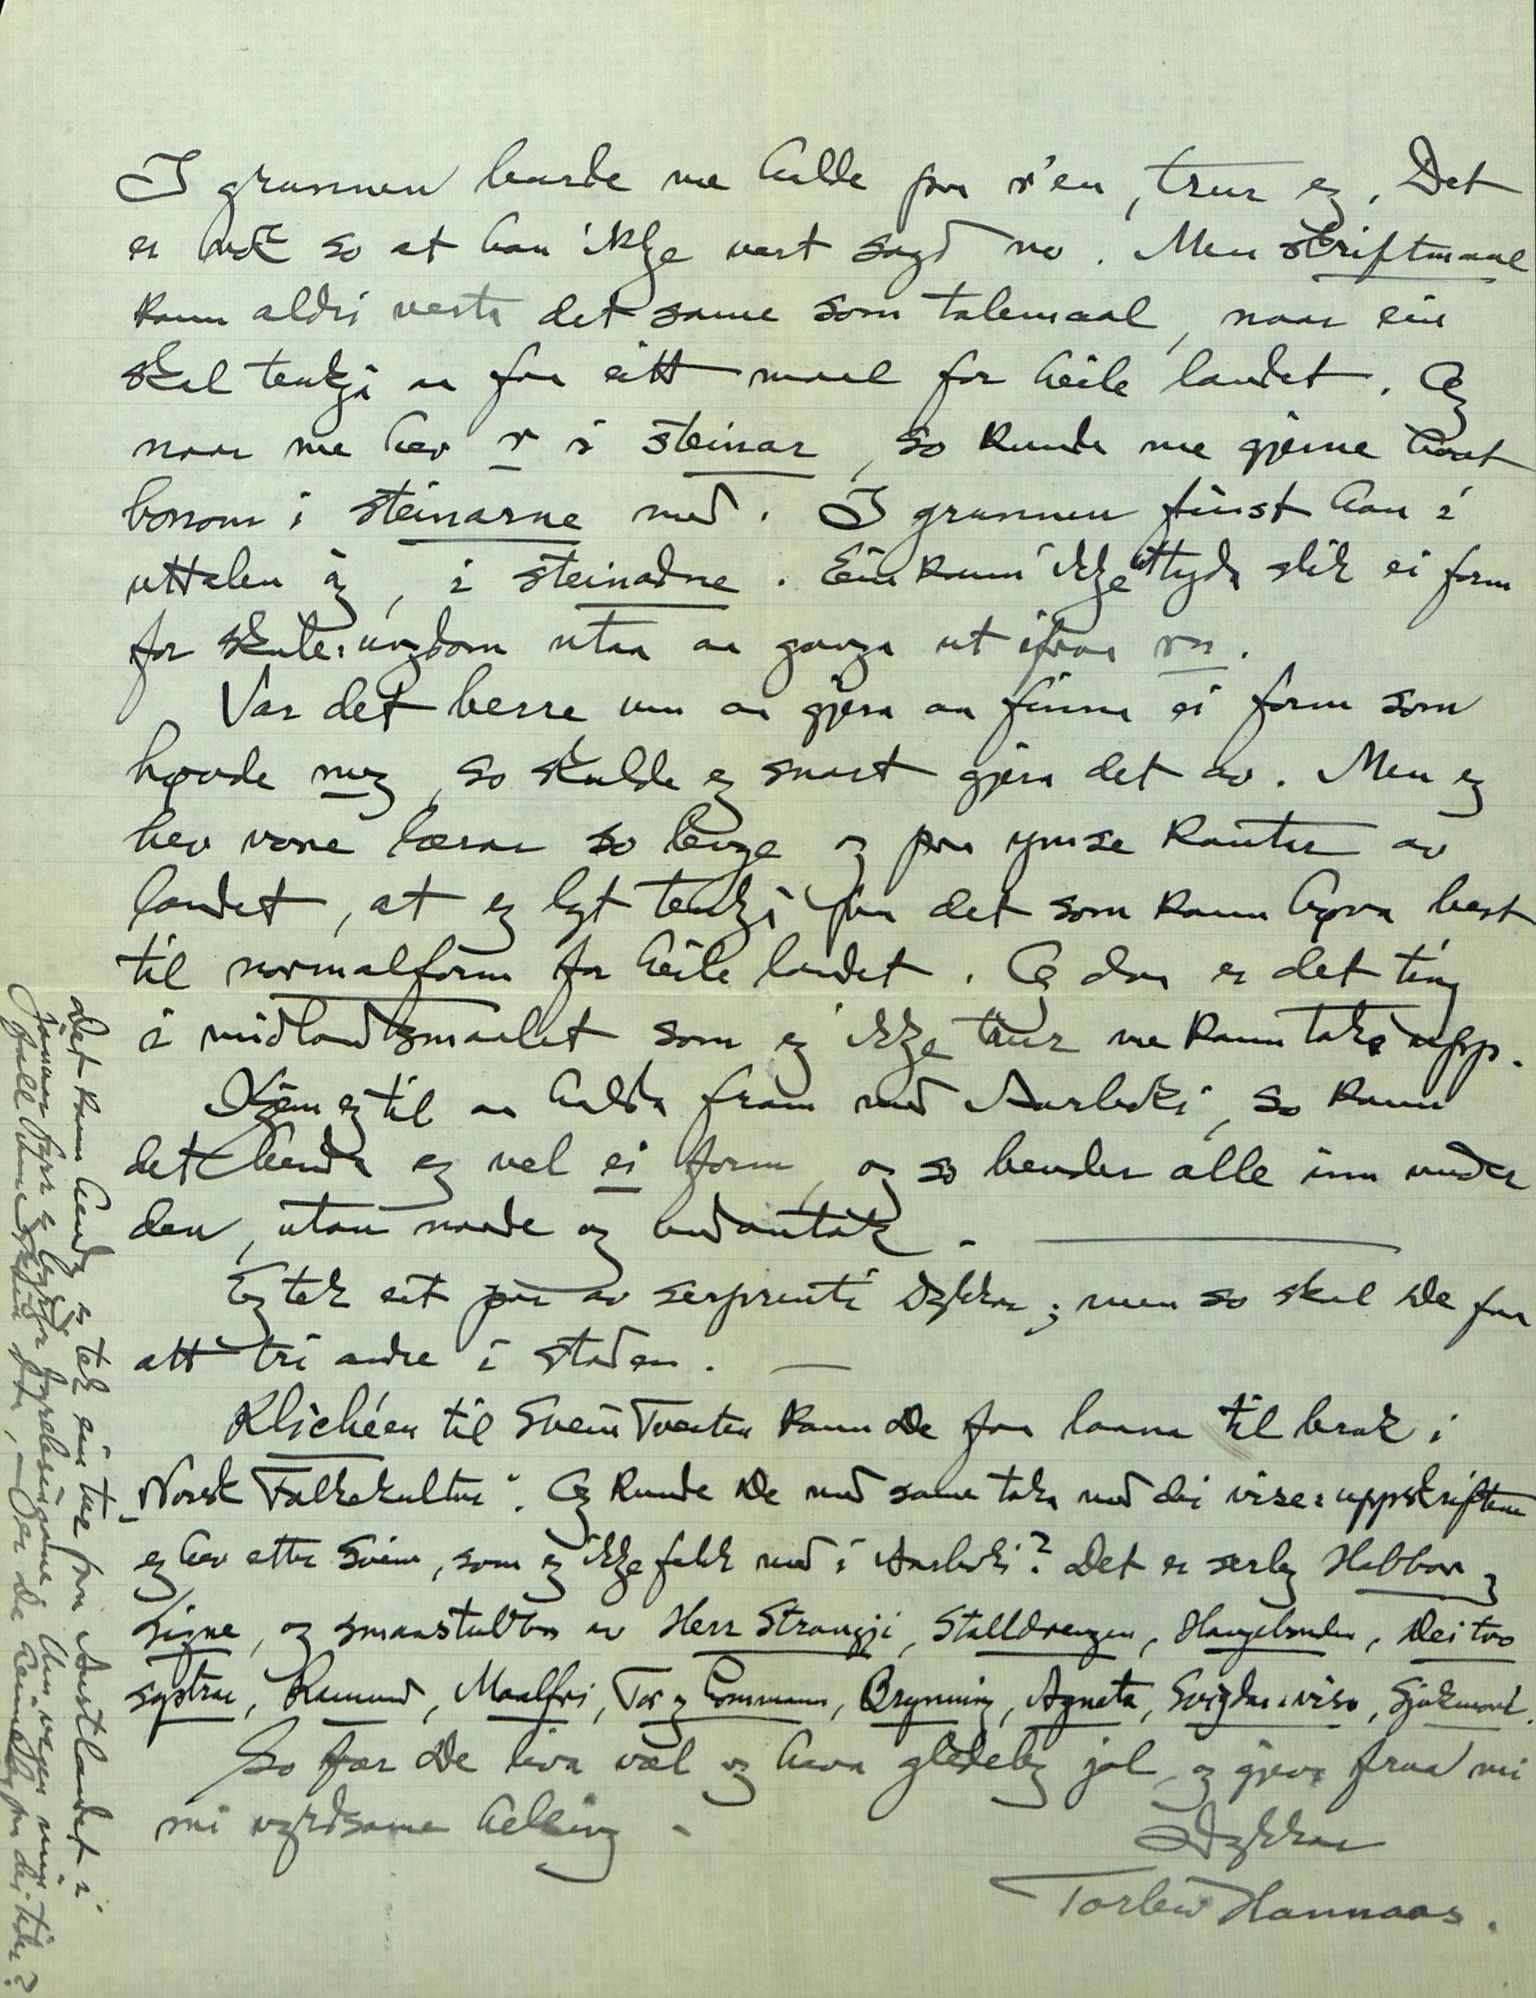 I grunnen burde me halde paa r'en, trur eg. Det
er nok so at han ikkje vert sagd no. Men skriftmaal
kann aldri verta det same som talemaal, naar ein
skal tenkja aa faa eitt maal for heile landet. Og
naar me hev r i steinar, so kunde me gjerne havt
honom i steinarne med. I grunnen finst han i
uttalen òg, i steinadne. Ein kann ikkje tyda slik ei form
for skule-ungdom utan aa ganga ut ifraa rn.
Var det berre um aa gjera aa finna ei form som
høvde meg, so skulde eg snart gjera det av. Men eg
hev vore lærar so lenge og paa ymse kantar av
landet, at eg lyt tenkja paa det som kann høva best
til normalform for heile landet. Og daa er det ting
i midlandsmaalet som eg ikkje trur me kann taka upp.
Kjem eg til aa halda fram med Aarboki, so kann
det henda eg vel ei form, og so bender alle inn under
den, utan naade og undantak. —
Eg tek eit par av serprenti Dykkar; men so skal De faa
att tri andre i staden. —
Klichéen til Svein Tveiten kann De faa laana til bruk i
"Norsk Folkekultur". Og kunde De med same taka med dei vise-uppskriftene
eg hev etter Svein, som eg ikkje fekk med i Aarboki? Det er serleg Habbor og
Signe, og smaastubbar av Herr Strangji, Stalldrengen, Haugebonden, Dei tvo
systrar, Ramund, Maalfri, Tor og Gommann, Brynning, Agneta, Svigdar-visa, Sjukmord.
So fær De liva væl og hava gledeleg jol, og gjeva fraa mi
mi vyrdsame helsing –
Dykkar
Torleiv Hannaas.
Det kann henda eg tek ein tur paa Austlandet i
januar fyrr eg byrjar fyrelesingane. Um vegen min
fall – Er De heime paa dei tider?